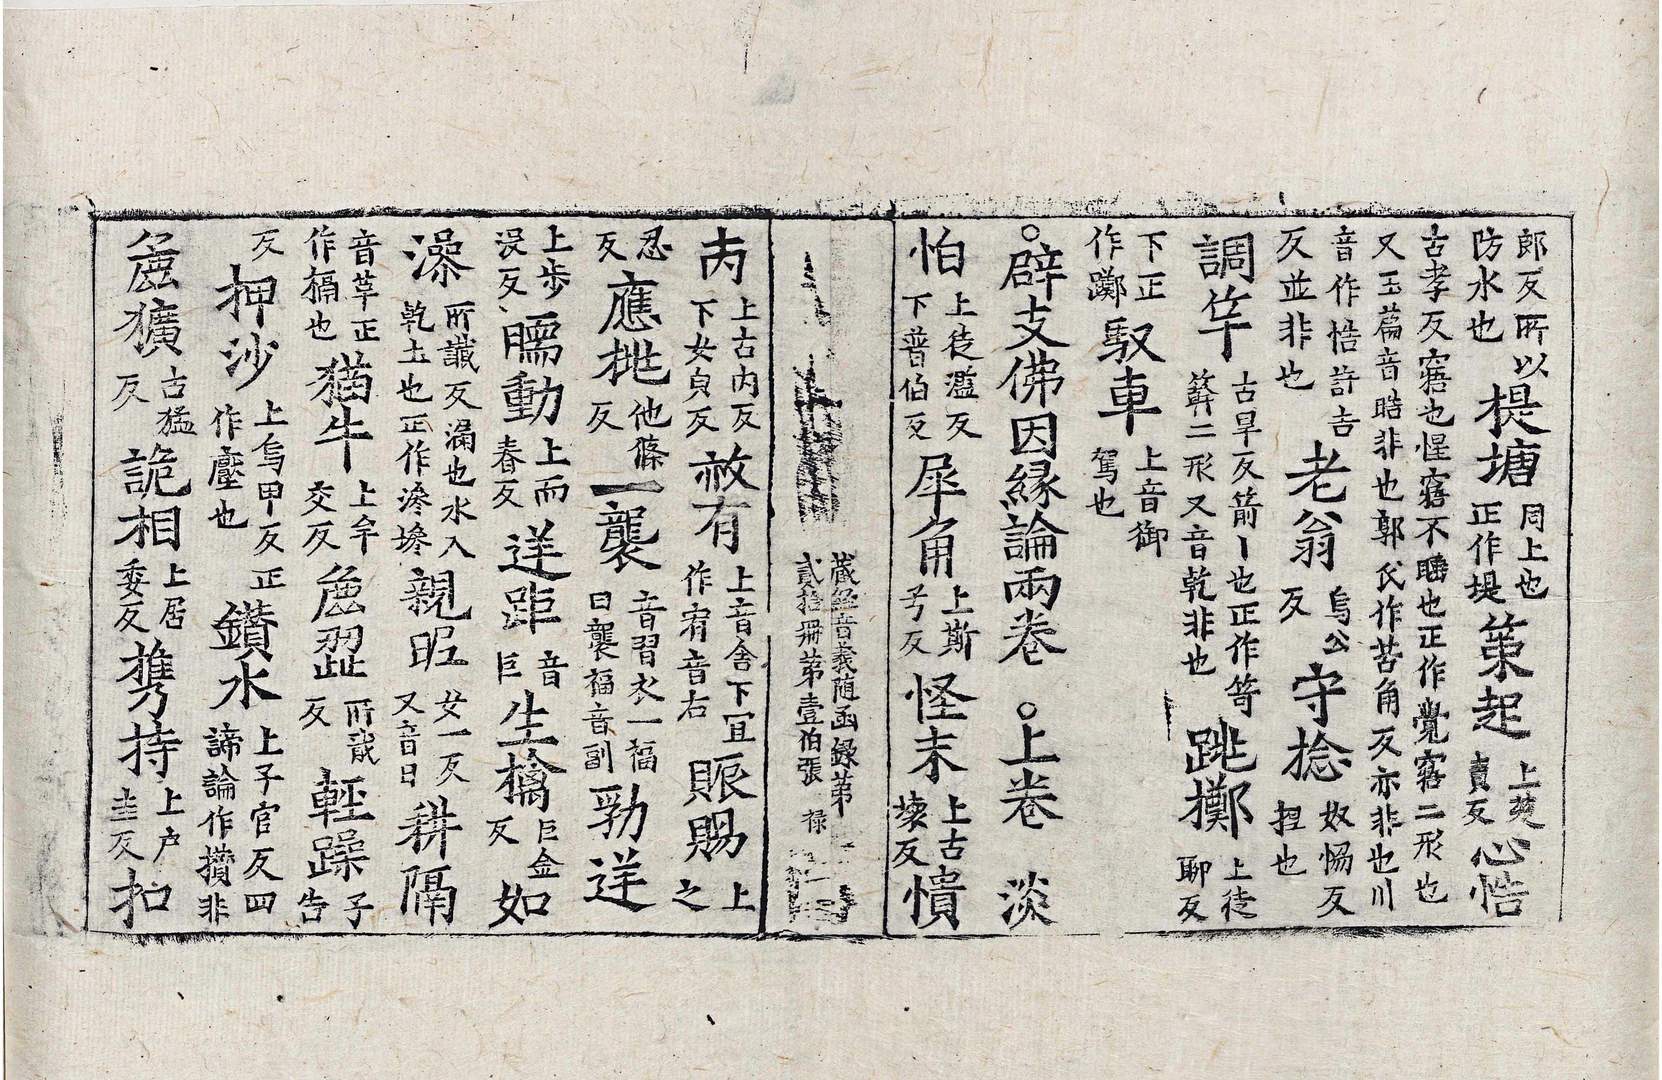 郎反所以防水也堤塘同上也正作堤策起上楚責反心悎
古孝反寤也惺寤不睡也正作覺寤二形也又玉篇音晧非也郭氏作苦角反亦非也川
音作悟許吉反並非也老翁烏公反守捻奴惕反担也
調笴古旱反箭丨也正作笴簳二形又音乾非也跳擲上徒聊反
下正作躑馭車上音御駕也
○辟支佛因緣論兩卷○上卷淡
怕上徒濫反下普伯反犀角上斯兮反怪未上古壞反憒
藏經音義随函録第貳拾冊第壹伯張 禄
𠕋上古内反下女貞反赦有上音舍下宜作宥音右賑賜上之
忍反應桃他條反一襲音習衣一福曰襲福音副勃逆
上步没反蠕動上而春反逆距音巨生擒巨金反如
瀑所讖反漏也水入乾土也正作滲㙻親昵女一反又音日耕隔
音革正作搹也犛牛上牟交反麁澀所戢反輕躁子告
反押沙上烏甲反正作壓也鑽水上子官反四諦論作攢非
麁獷古猛反詭相上居委反攜持上户圭反扣